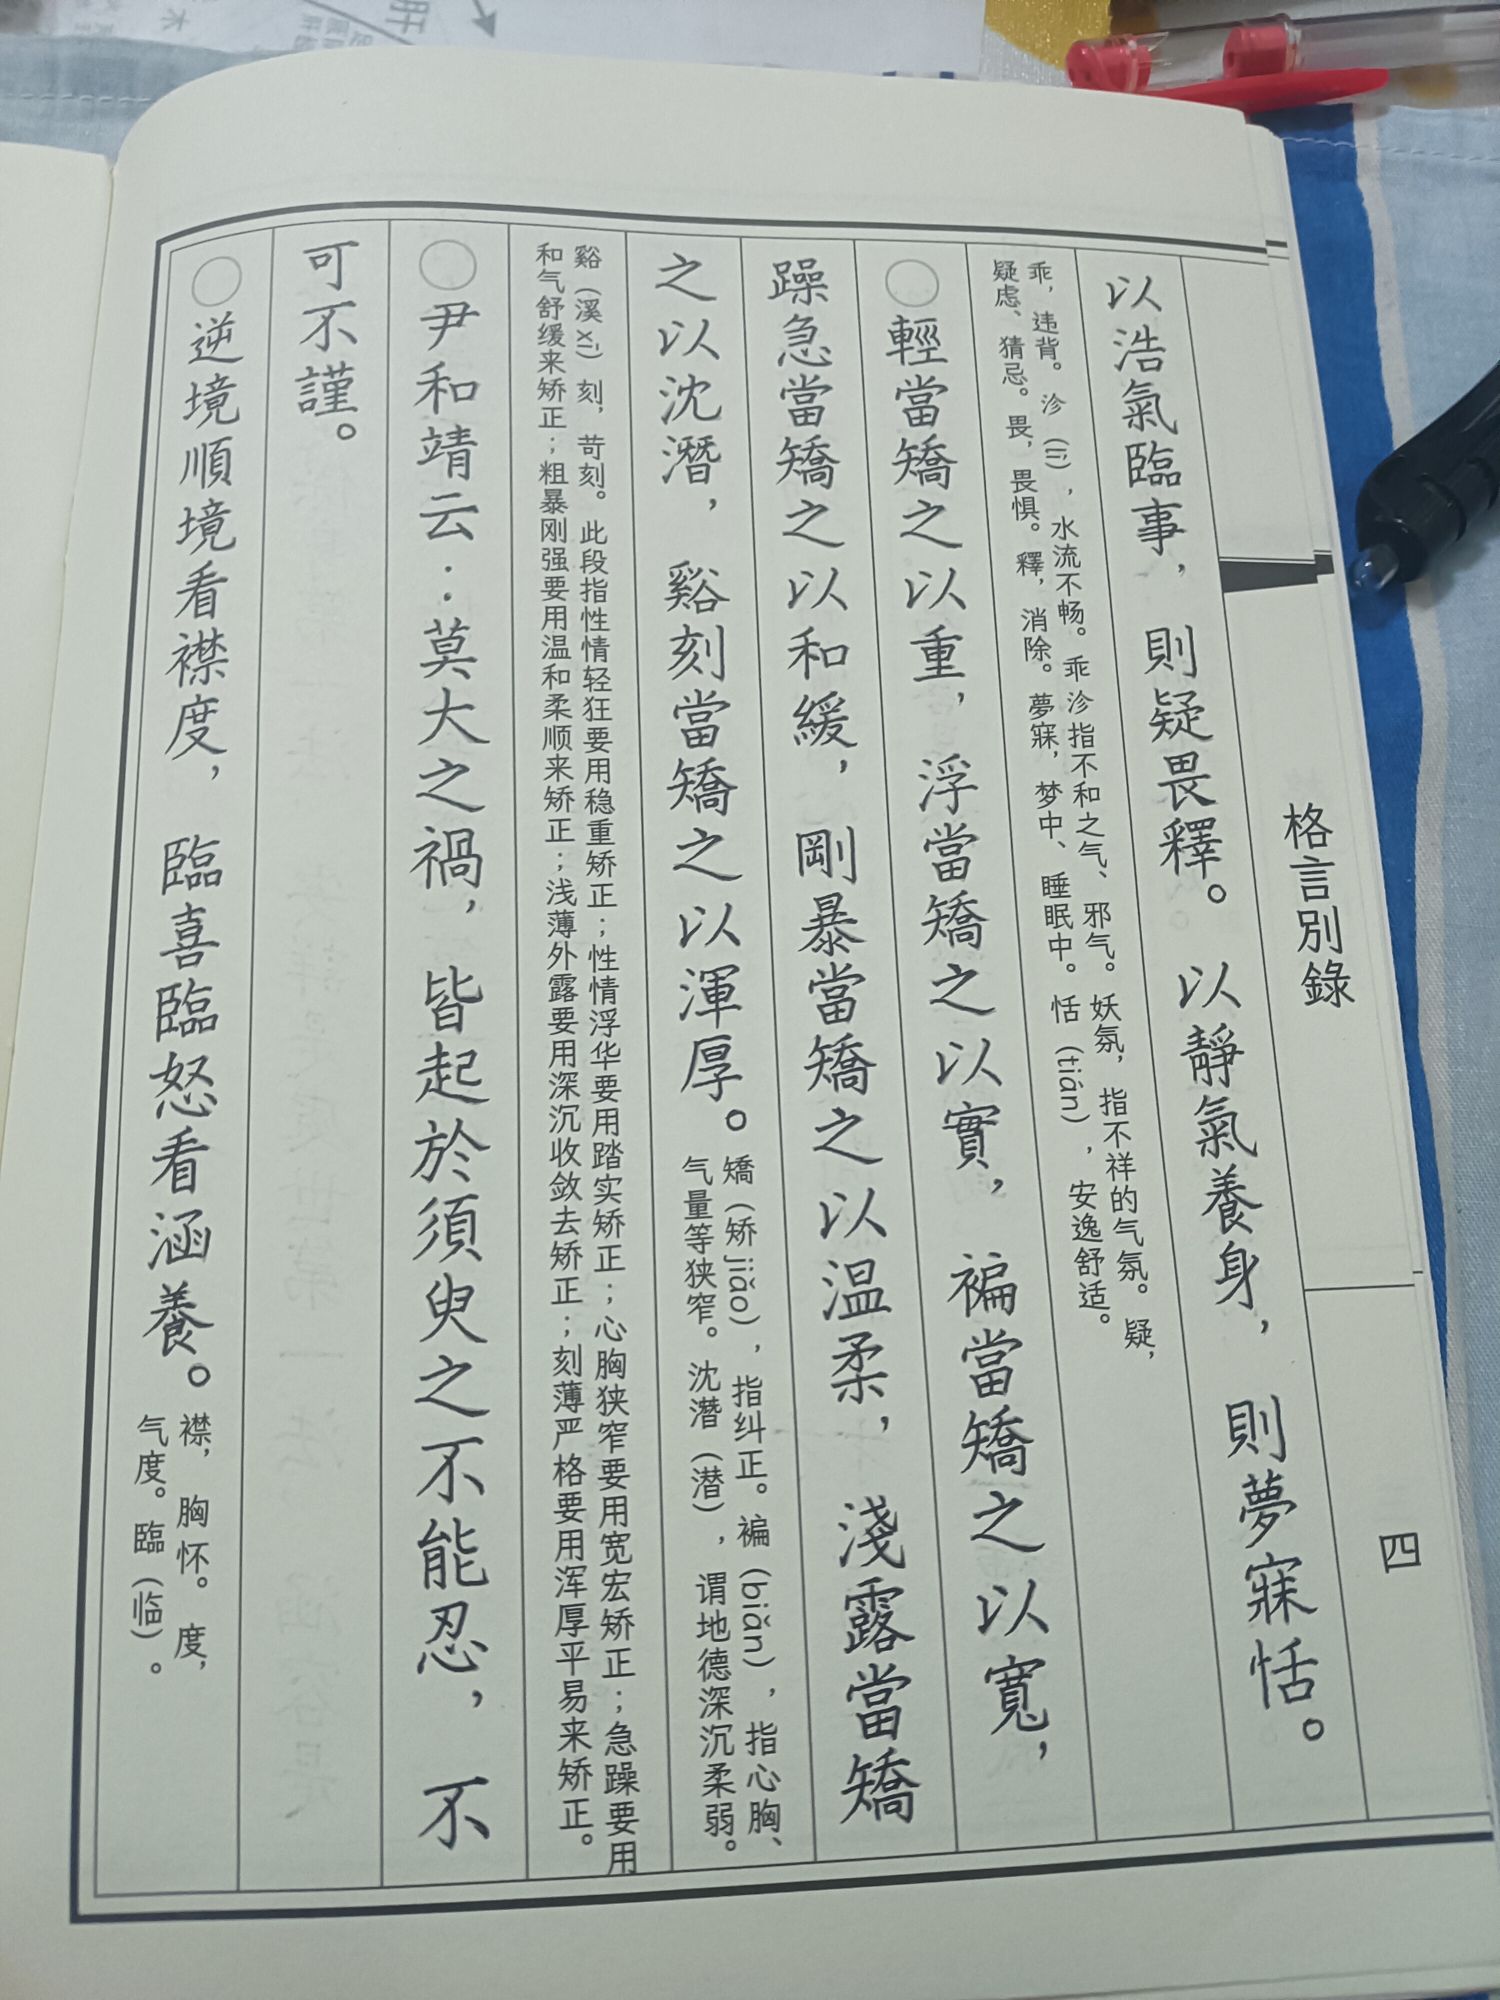 格言別錄
四
以浩氣臨事，則疑畏釋。以靜氣養身，則夢寐恬。
乖，违背。沴（lì），水流不畅。乖沴指不和之气、邪气。妖氛，指不祥的气氛。疑，
疑虑、猜忌。畏，畏惧。釋，消除。夢寐，梦中、睡眠中。恬（tián），安逸舒适。
○輕當矯之以重，浮當矯之以實，褊當矯之以寬，
躁急當矯之以和緩，剛暴當矯之以温柔，淺露當矯
之以沈潛，谿刻當矯之以渾厚。
矯（矫jiǎo），指纠正。褊（biǎn），指心胸、
气量等狭窄。沈潛（潜），谓地德深沉柔弱。
谿（溪xī）刻，苛刻。此段指性情轻狂要用稳重矫正；性情浮华要用踏实矫正；心胸狭窄要用宽宏矫正；急躁要用
和气舒缓来矫正；粗暴刚强要用温和柔顺来矫正；浅薄外露要用深沉收敛去矫正；刻薄严格要用浑厚平易来矫正。
○尹和靖云：莫大之禍，皆起於須臾之不能忍，不
可不謹。
○逆境順境看襟度，臨喜臨怒看涵養。
襟，胸怀。度，
气度。臨（临）。
肝
木